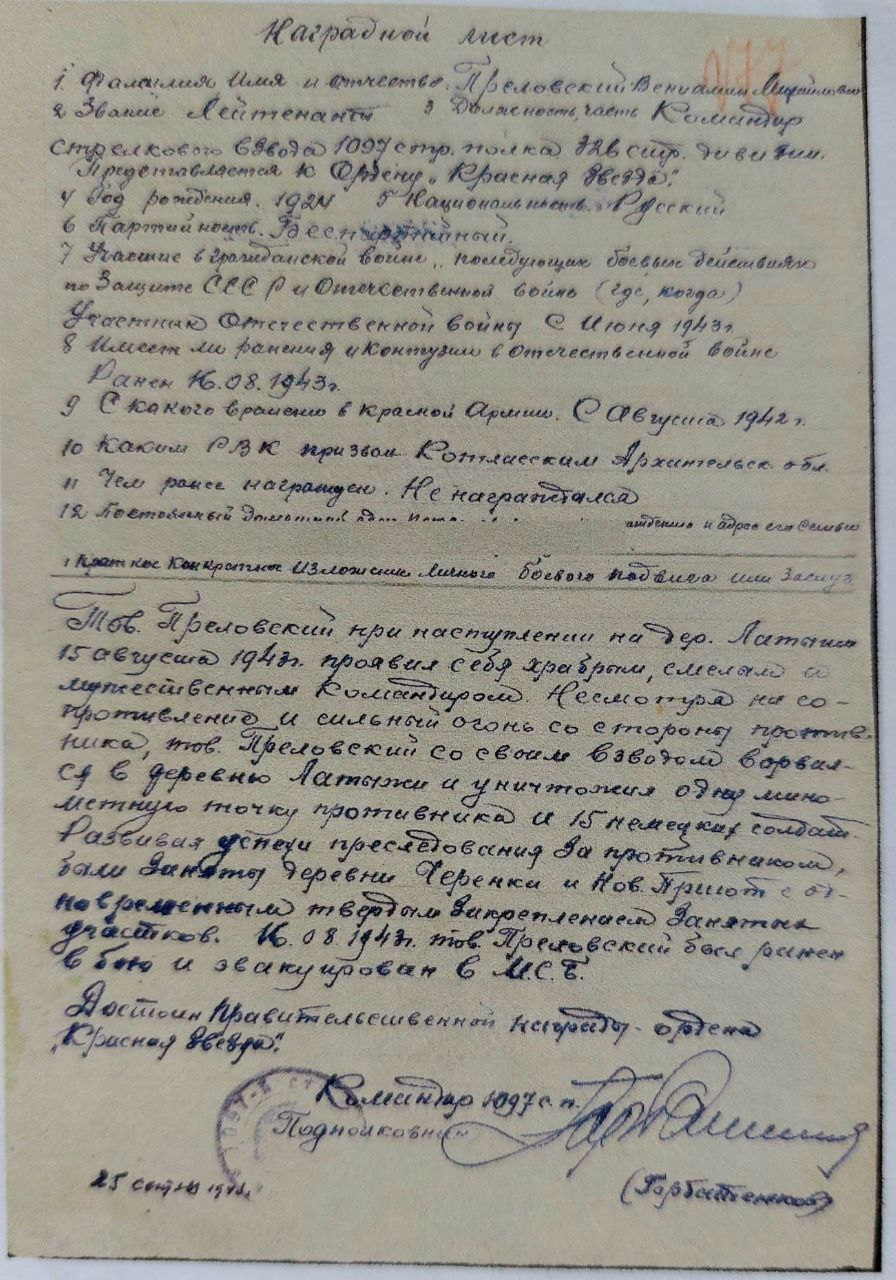 Наградной лист
1 Фамилия Имя и отчество. Преловский Вениамин Михайлович
2 Звание Лейтенант 3 Должность, часть Командир
стрелкового взвода 1097 стр. полка 326 стр. дивизии.
Представляется к Ордену „Красная Звезда".
4 Год рождения. 1924 5 Национальность Русский
6 Партийность. Беспартийный.
7 Участие в гражданской войне, последующих боевых действиях
по Защите СССР и Отечественной войне (где, когда)
Участник Отечественной войны С Июня 1943г.
8 Имеет ли ранения и контузии в отечественной войне
Ранен 16.08.1943г.
9 С какого времени в красной Армии. С Августа 1942г.
10 Каким РВК призван Котласским Архангельск. обл.
11 Чем ранее награжден. Не награждался
12 Постоянный домашний и адрес его семьи
Краткое Конкретное Изложение личного боевого подвига или Заслуг
Тов. Преловский при наступлении на дер. Латыжи
15 августа 1943г. проявил себя храбрым, смелым и
мужественным Командиром. Несмотря на со-
противление и сильный огонь со стороны против-
ника, тов. Преловский со своим взводом ворвал-
ся в деревню Латыжи и уничтожил одну мино-
метную точку противника и 15 немецких солдат.
Развивая успехи преследования За противником,
были Заняты деревни Черенки и Нов. Приют с од-
новременным твердым Закреплением Занятых
участков. 16.08.1943г. тов. Преловский был ранен
в бою и эвакуирован в М.С.Б.
Достоин Правительственной награды - ордена
„Красная Звезда".
Командир 1097 с.п.
Подполковник
25
(Горбатенков)